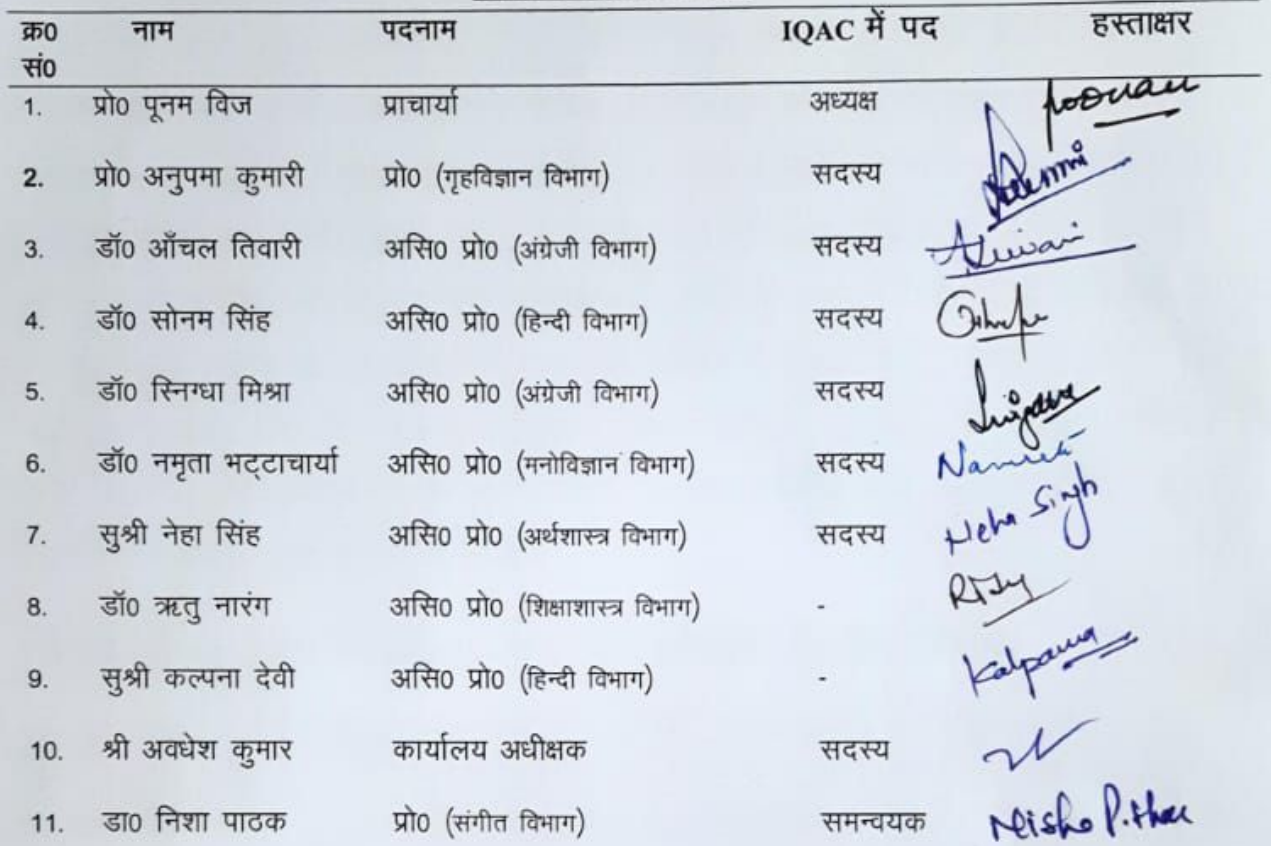 क्र0 नाम पदनाम IQAC में पद हस्ताक्षर
सं0
1. प्रो0 पूनम विज प्राचार्या अध्यक्ष poonam
2. प्रो0 अनुपमा कुमारी प्रो0 (गृहविज्ञान विभाग) सदस्य
3. डॉ0 आँचल तिवारी असि0 प्रो0 (अंग्रेजी विभाग) सदस्य ATiwari
4. डॉ0 सोनम सिंह असि0 प्रो0 (हिन्दी विभाग) सदस्य
5. डॉ0 स्निग्धा मिश्रा असि0 प्रो0 (अंग्रेजी विभाग) सदस्य
6. डॉ0 नमृता भट्टाचार्या असि0 प्रो0 (मनोविज्ञान विभाग) सदस्य Namrta
7. सुश्री नेहा सिंह असि0 प्रो0 (अर्थशास्त्र विभाग) सदस्य Neha Singh
8. डॉ0 ऋतु नारंग असि0 प्रो0 (शिक्षाशास्त्र विभाग) -
9. सुश्री कल्पना देवी असि0 प्रो0 (हिन्दी विभाग) - Kalpana
10. श्री अवधेश कुमार कार्यालय अधीक्षक सदस्य
11. डा0 निशा पाठक प्रो0 (संगीत विभाग) समन्वयक Nisha P.thak